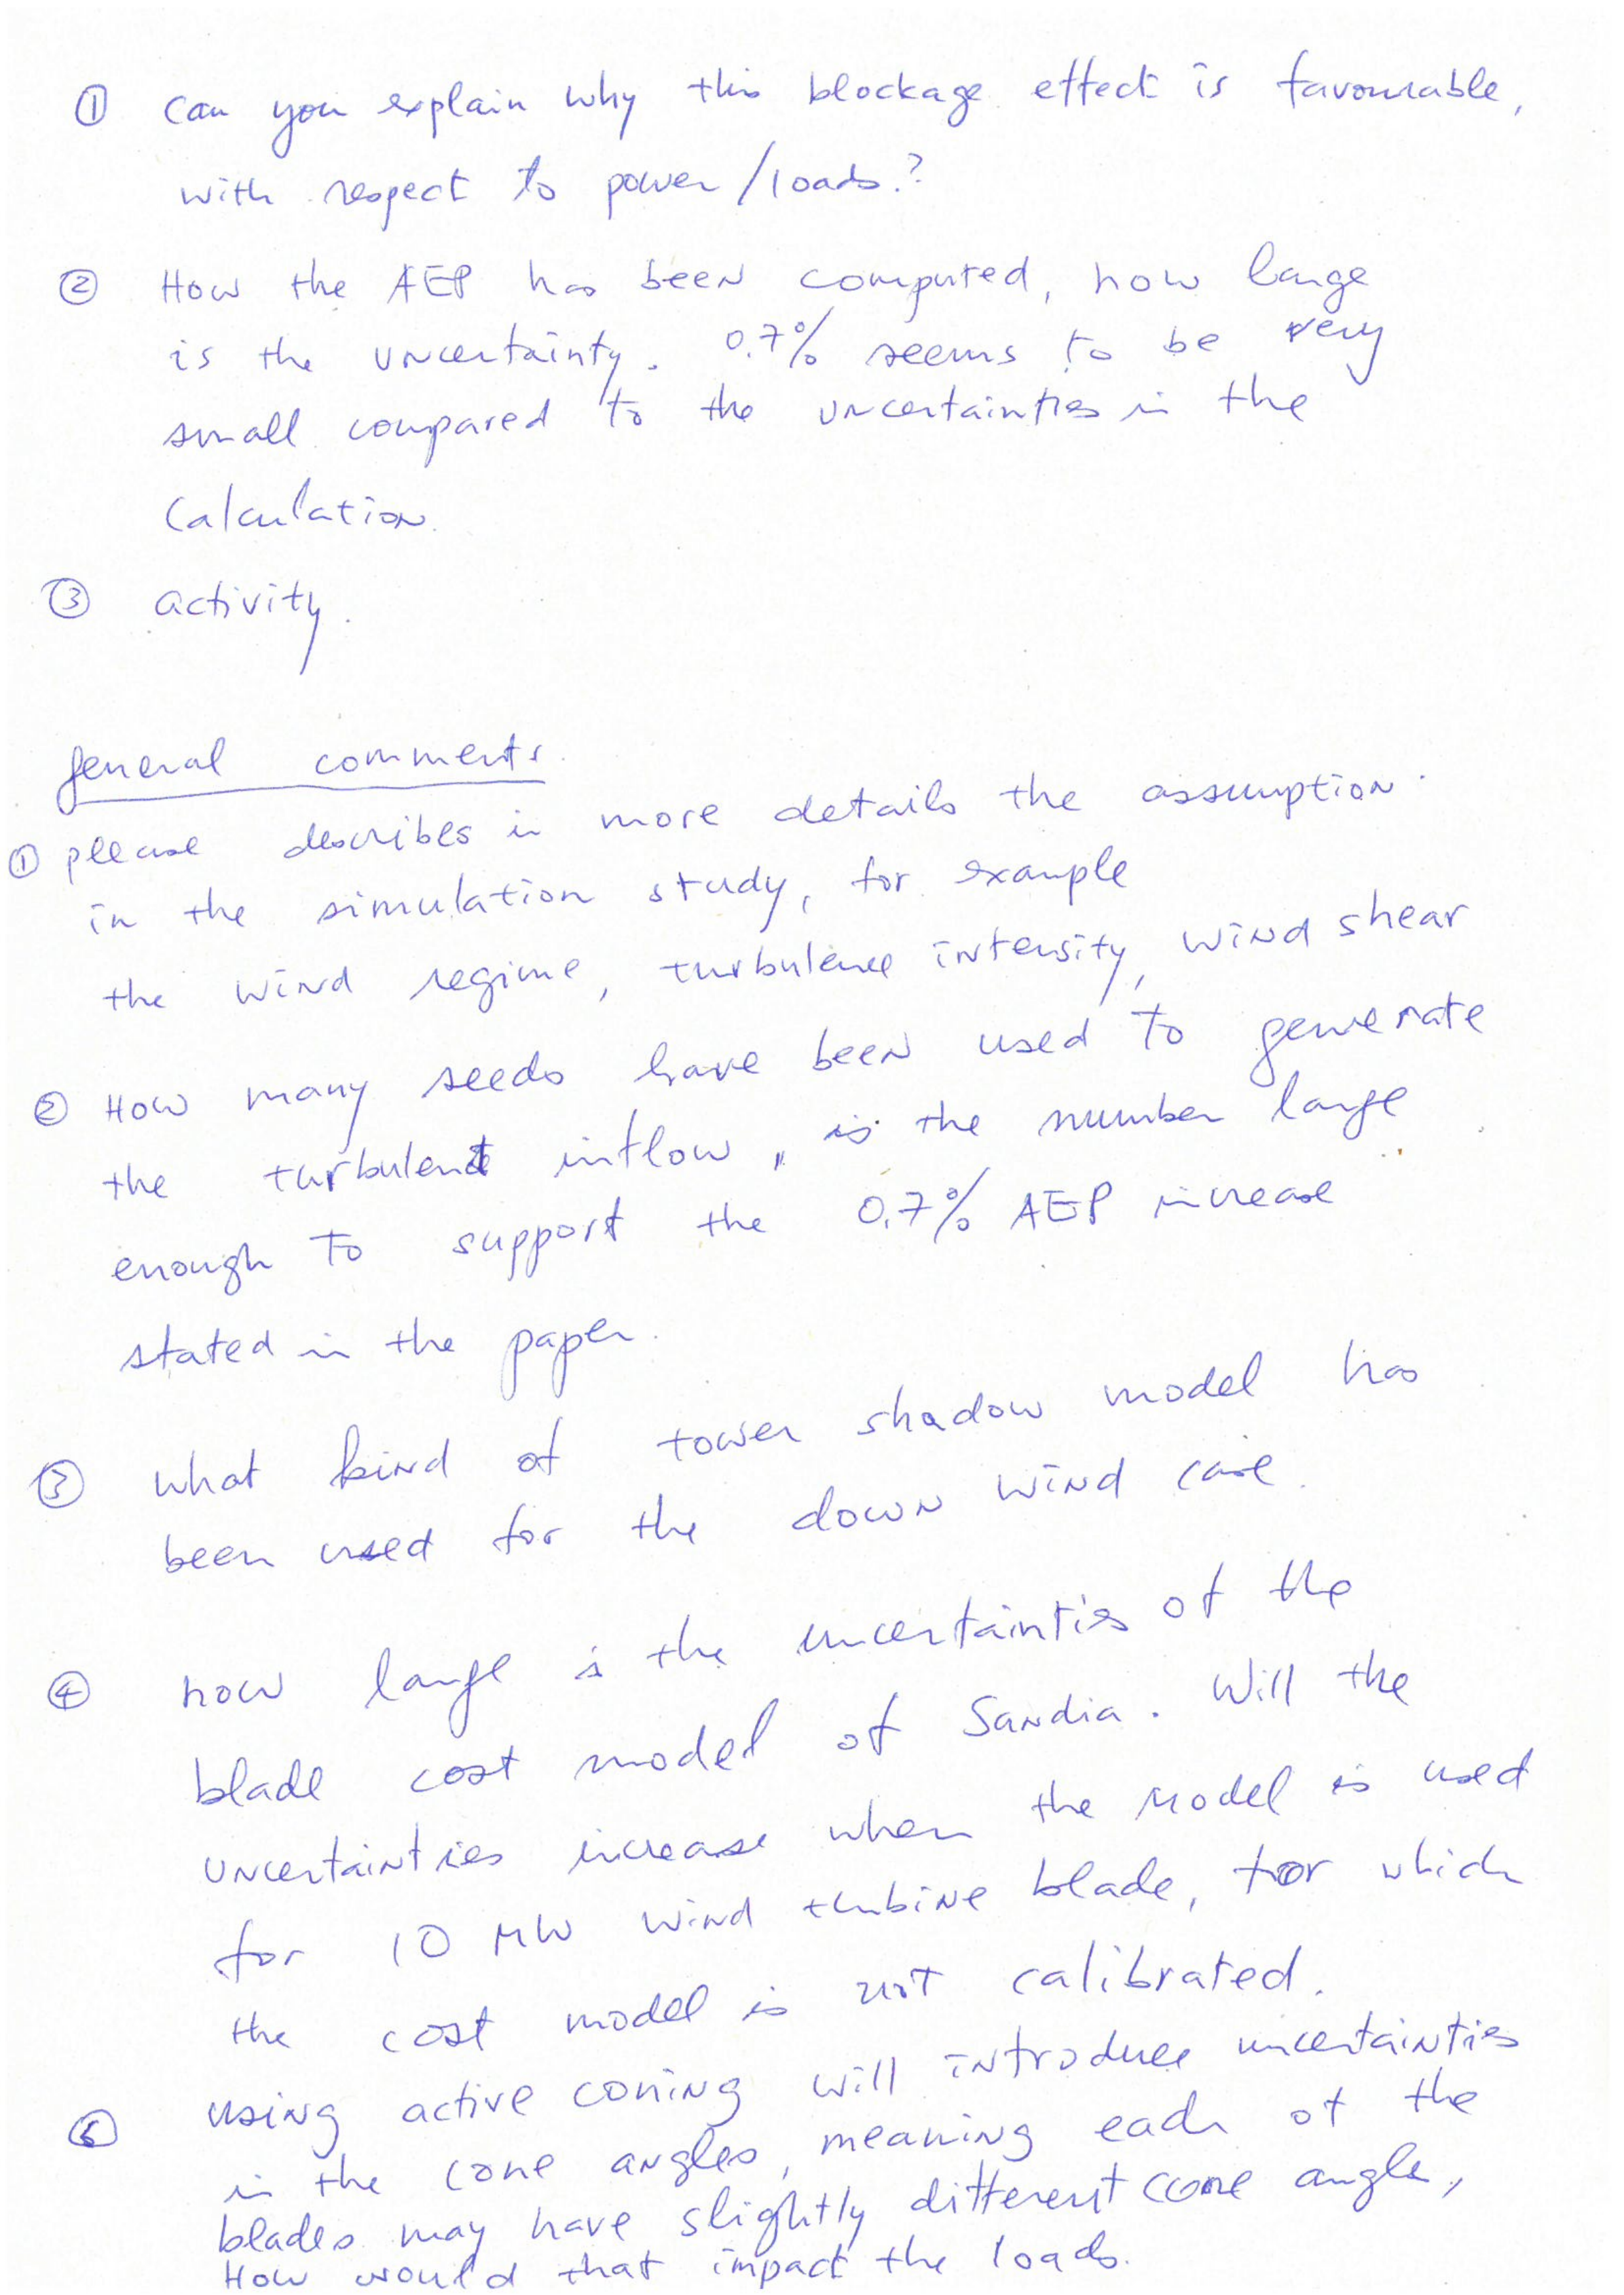 ① can you explain why this blockage effect is favourable,
with respect to power/loads.?
② How the AEP has been computed, how large
is the uncertainty. 0.7% seems to be very
small compared to the uncertainties in the
calculation.
③ activity.
general comments.
① please describes in more details the assumption
in the simulation study, for example
the wind regime, turbulence intensity, wind shear
② How many seeds have been used to generate
the turbulent inflow, is the number large
enough to support the 0.7% AEP increase
stated in the paper.
③ what kind of tower shadow model has
been used for the down wind case.
④ how large is the uncertainties of the
blade cost model of Sandia. Will the
uncertainties increase when the model is used
for 10 MW wind turbine blade, for which
the cost model is not calibrated.
⑤ using active coning will introduce uncertainties
in the cone angles, meaning each of the
blades may have slightly different cone angle,
How would that impact the loads.